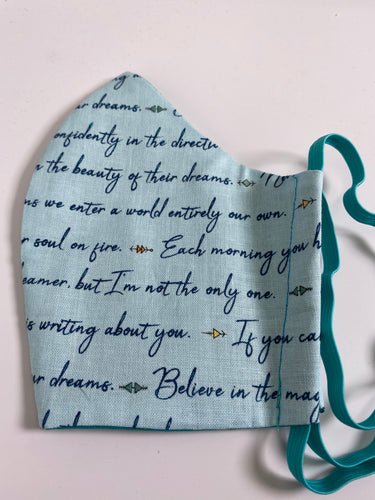 ur dreams.
onfidently in the directi
n the beauty of their dreams.
ms we enter a world entirely our own.
r soul on fire. Each morning you h
eamer, but I'm not the only one.
is writing about you. If you ca
ur dreams. Believe in the mag